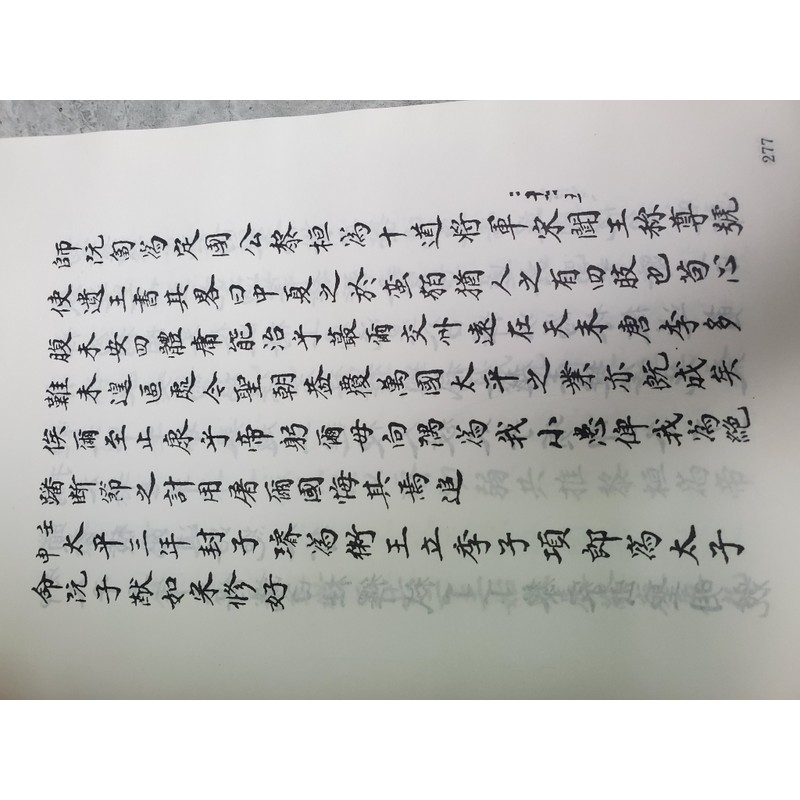 師阮匐為定國公黎桓為十道將軍宋聞王称尊號
使遺王書其畧曰中夏之於蛮貊猶人之有四肢也苟心
腹未安四體庸能治乎蕞爾交州遠在天末唐李多
難未遑區處令聖朝蓋覆萬國太平之業亦既成矣
俟爾至止康乎帝躬爾毋向隅為我小患俾我為絕
蹯斷節之計用屠爾國悔其焉追
壬申太平三年封子璿為衛王立季子項郎為太子
命阮子猷如宋修好
277